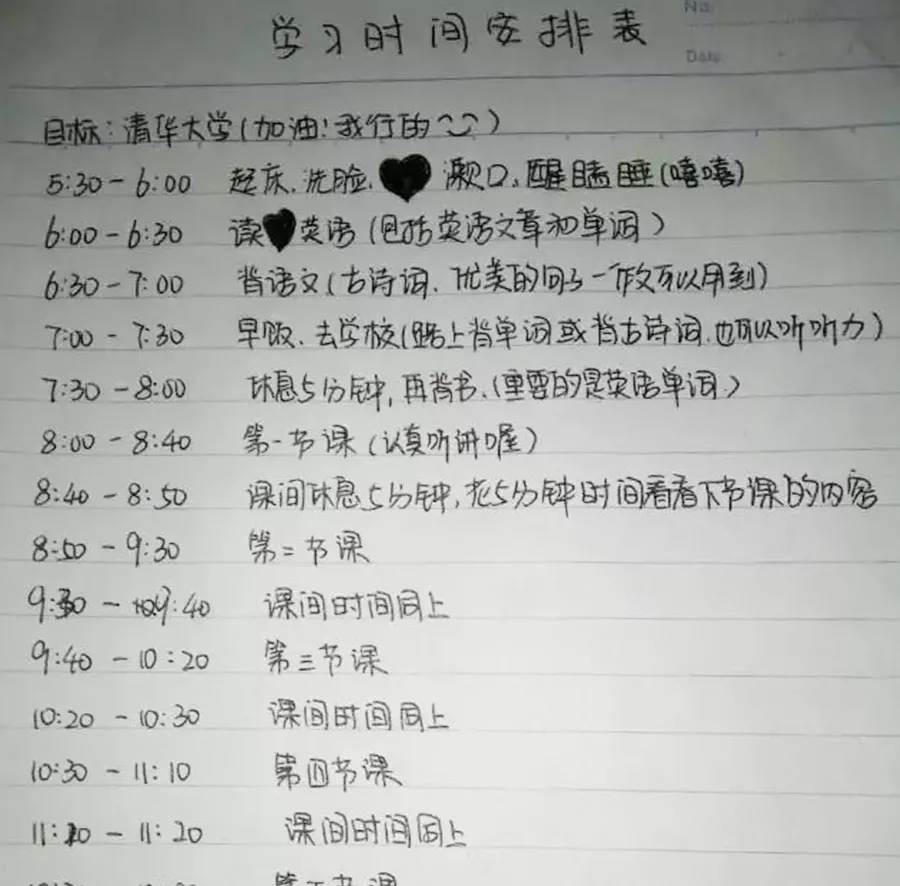 学习时间安排表
No.
Date
目标：清华大学(加油!我行的)
5:30 - 6:00 起床、洗脸、漱口、醒瞌睡(嘻嘻)
6:00 - 6:30 读英语(包括英语文章和单词)
6:30 - 7:00 背语文(古诗词、优美的句子—作文可以用到)
7:00 - 7:30 早饭、去学校(路上背单词或背古诗词.也可以听听力)
7:30 - 8:00 休息5分钟,再背书.(重要的是英语单词.)
8:00 - 8:40 第一节课(认真听讲喔)
8:40 - 8:50 课间休息5分钟,花5分钟时间看看下节课的内容
8:50 - 9:30 第二节课
9:30 - 9:40 课间时间同上
9:40 - 10:20 第三节课
10:20 - 10:30 课间时间同上
10:30 - 11:10 第四节课
11:10 - 11:20 课间时间同上